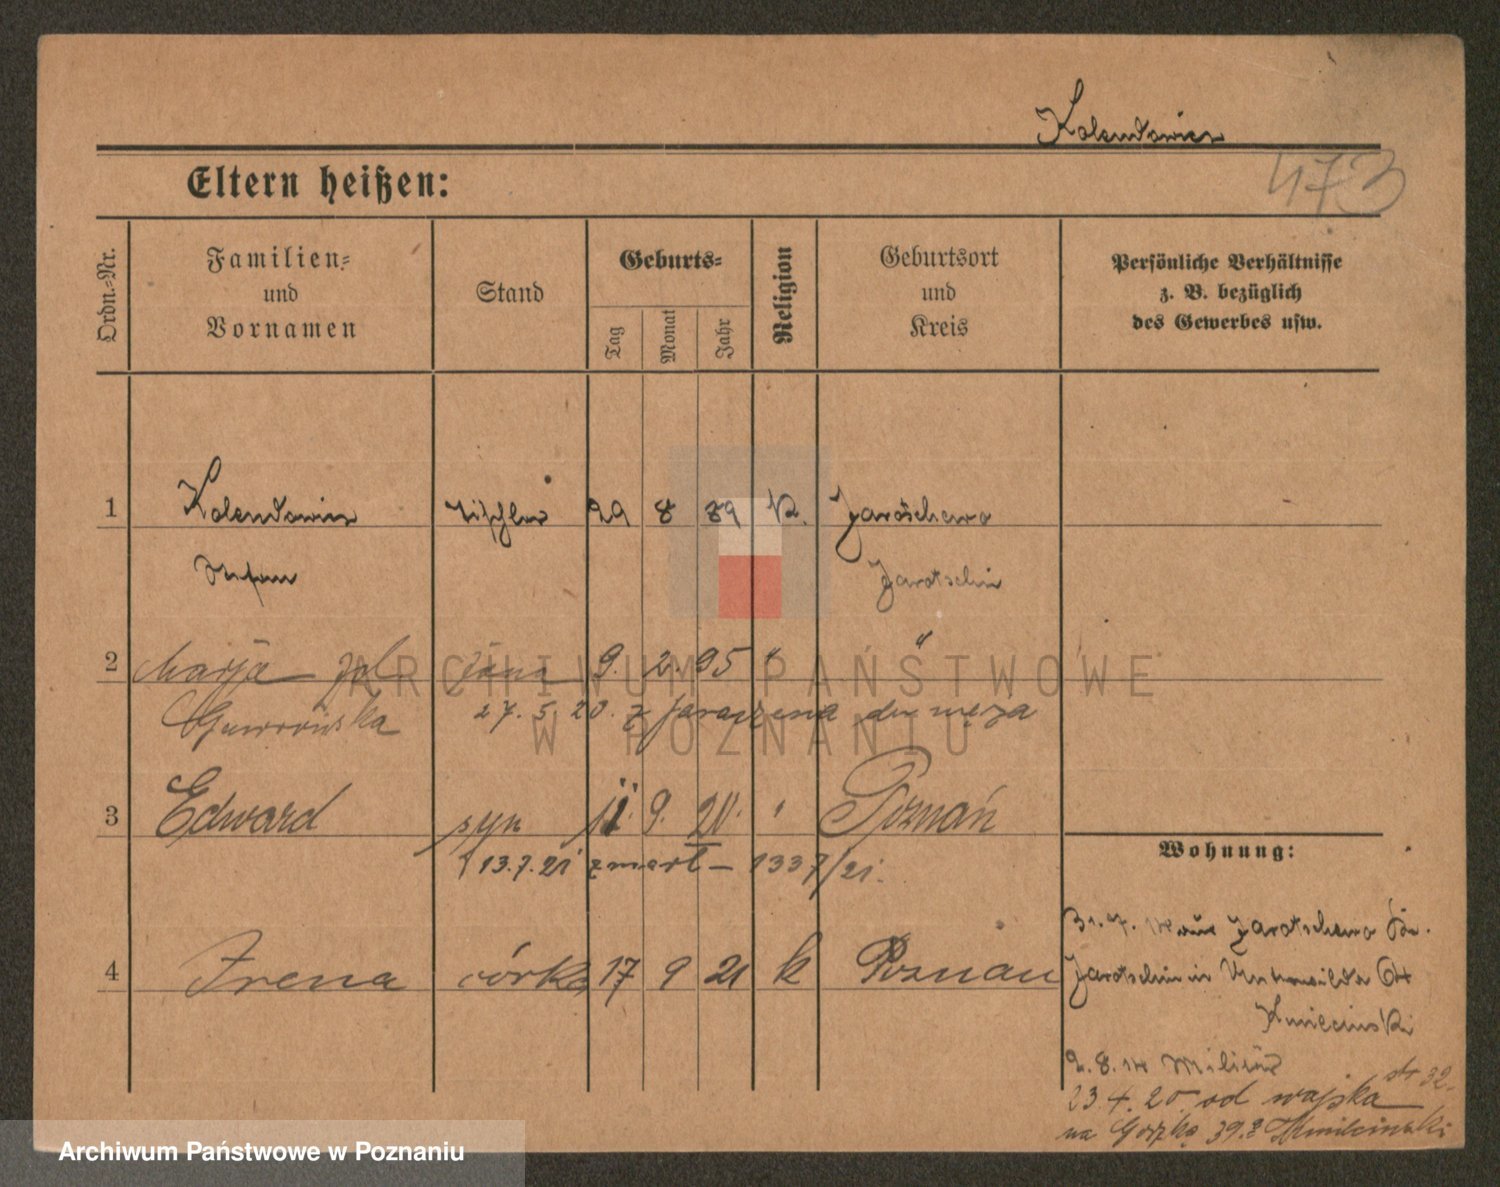 Kolendowicz
473
Eltern heißen:
Ordn.-Nr.
Familien- und Vornamen
Stand
Geburts-
Tag
Monat
Jahr
Religion
Geburtsort und Kreis
Persönliche Verhältnisse
z. B. bezüglich
des Gewerbes usw.
1 Kolendowicz Tischler 29 8 89 K. Jarotschewo
Stefan Jarotschin
2 Marja żona 9. 2. 95 " "
27. 5. 20. z Jaraczewa do męża
3 Edward syn 11. 9. 20. " Poznań
† 13.7.21 zmarł – 1337/21.
4 Irena córka 17 9 21 k Poznań
Wohnung:
31. 7. 14 aus Jarotschewo
Jarotschin in Unterwilda
Kmiecinski
2. 8. 14 Militär
23 4. 20. od wojska
na Górną 39. Kmiecinski
ARCHIWUM PAŃSTWOWE
W POZNANIU
Archiwum Państwowe w Poznaniu